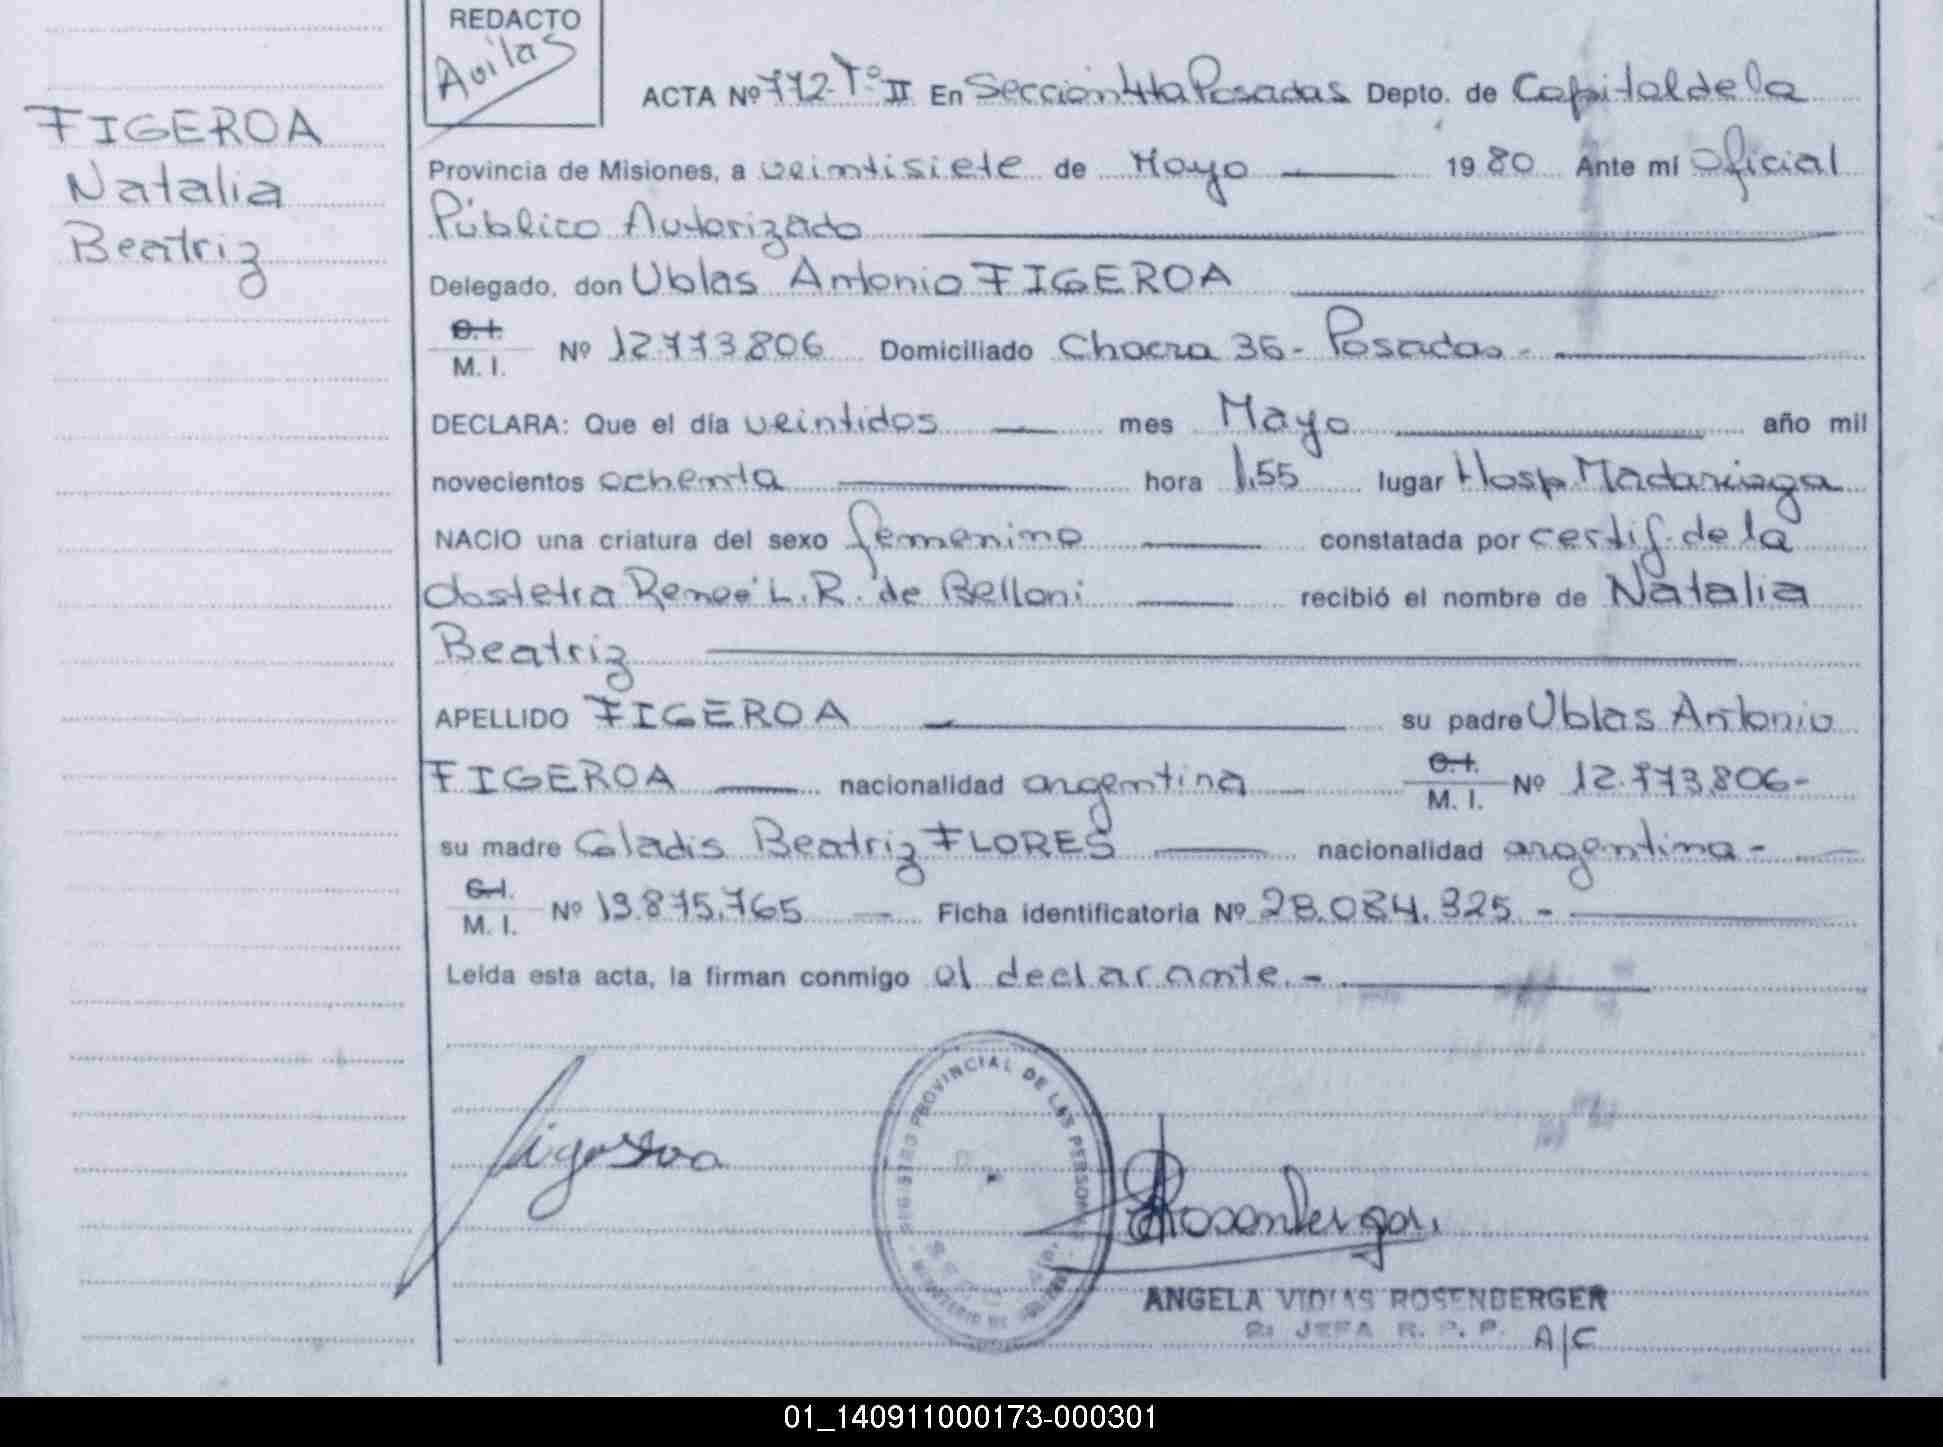 REDACTO
Avilas
FIGEROA
Natalia
Beatriz
ACTA Nº 772-Tº II En Sección 4ta Posadas Depto. de Capital de la
Provincia de Misiones, a veintisiete de Mayo 1980 Ante mí Oficial
Público Autorizado
Delegado, don Ublas Antonio FIGEROA
C.I.
M. I. Nº 12.773.806 Domiciliado Chacra 36 - Posadas -
DECLARA: Que el día veintidos mes Mayo año mil
novecientos ochenta hora 1,55 lugar Hosp Madariaga
NACIO una criatura del sexo femenino constatada por certif. de la
obstetra Reneé L. R. de Belloni recibió el nombre de Natalia
Beatriz
APELLIDO FIGEROA su padre Ublas Antonio
FIGEROA nacionalidad argentina C.I.
M. I. Nº 12.773.806-
su madre Gladis Beatriz FLORES nacionalidad argentina -
C.I.
M. I. Nº 13.875.765 Ficha identificatoria Nº 28.084.325 -
Leída esta acta, la firman conmigo el declarante. -
REGISTRO PROVINCIAL DE LAS PERSONAS
Rosenberger
ANGELA VIDIAS ROSENBERGER
JEFA R. P. P. A/C
01_140911000173-000301